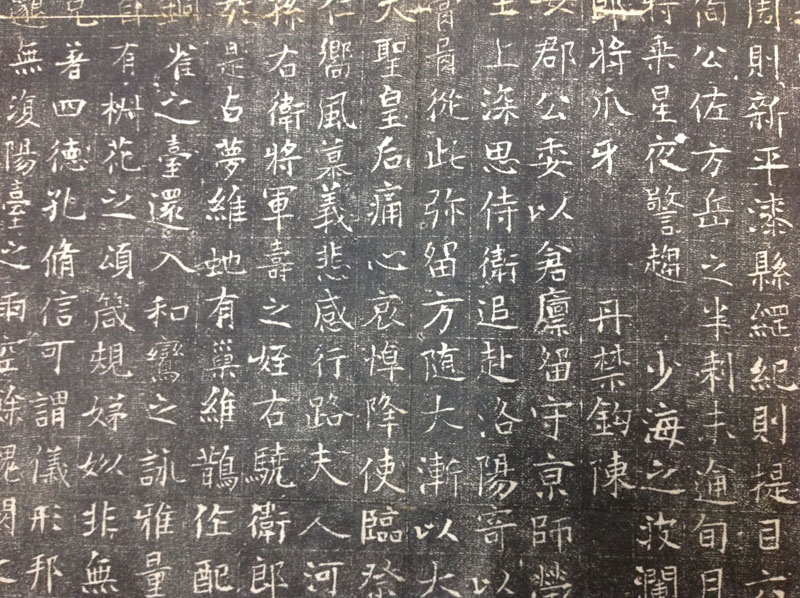 周則新平漆縣經紀則提目六
公佐方岳之半刺未逾旬月
將乘星夜警趨 少海之波瀾
郎將爪牙 丹禁鉤陳
郡公委以倉廩留守京師
主上深思侍衛追赴洛陽寄以
從此弥留方随大漸以大
天聖皇后痛心哀悼降使臨祭
仁嚮風慕義悲感行路夫人河
孫右衛將軍壽之姪右驍衛郎
於是占夢維虵有巢維鵲作配
銅雀之臺還入和鸞之詠雅量
有椒花之頌箴規娣姒非無
著四德孔脩信可謂儀形邦
無復陽臺之雨空餘魏闕之